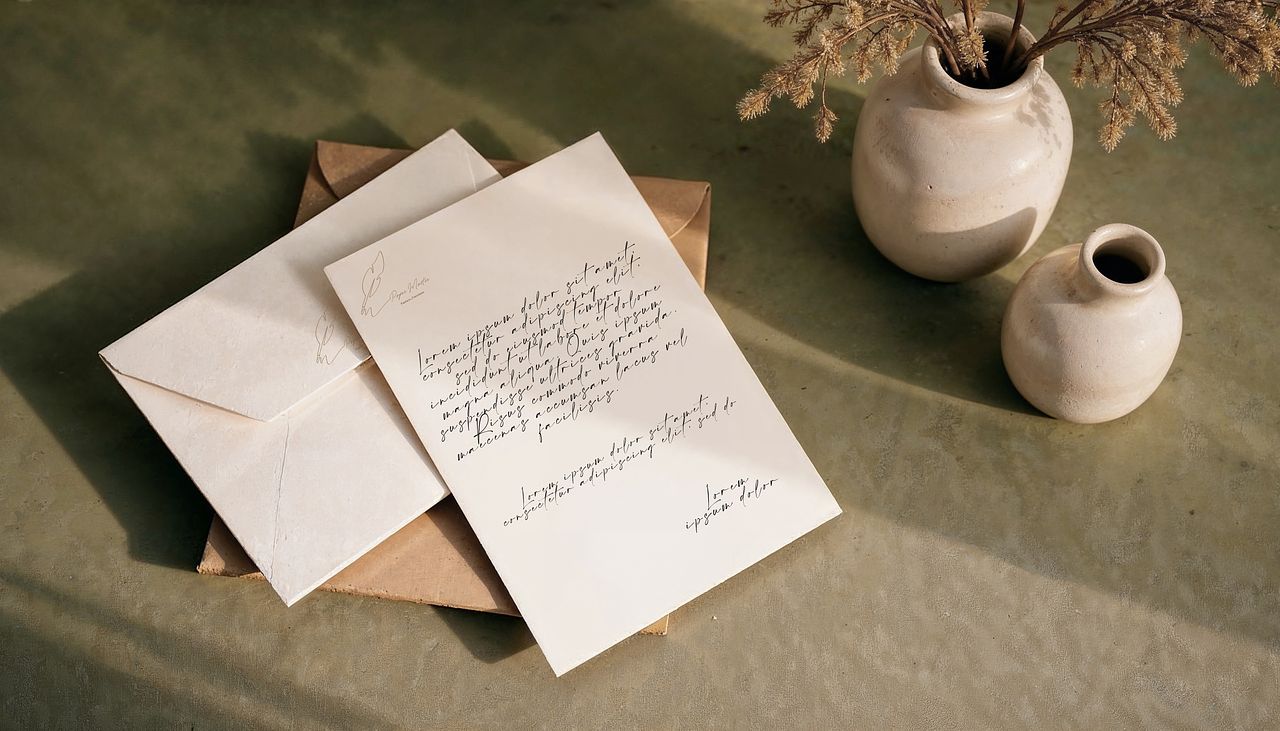 Lorem ipsum dolor sit amet,
consectetur adipiscing elit.
sed do eiusmod tempor
incididunt ut labore et dolore
magna aliqua. Quis ipsum
suspendisse ultrices gravida.
Risus commodo viverra
maecenas accumsan lacus vel
facilisis.
Lorem ipsum dolor sit amet.
consectetur adipiscing elit. sed do
Lorem
ipsum dolor